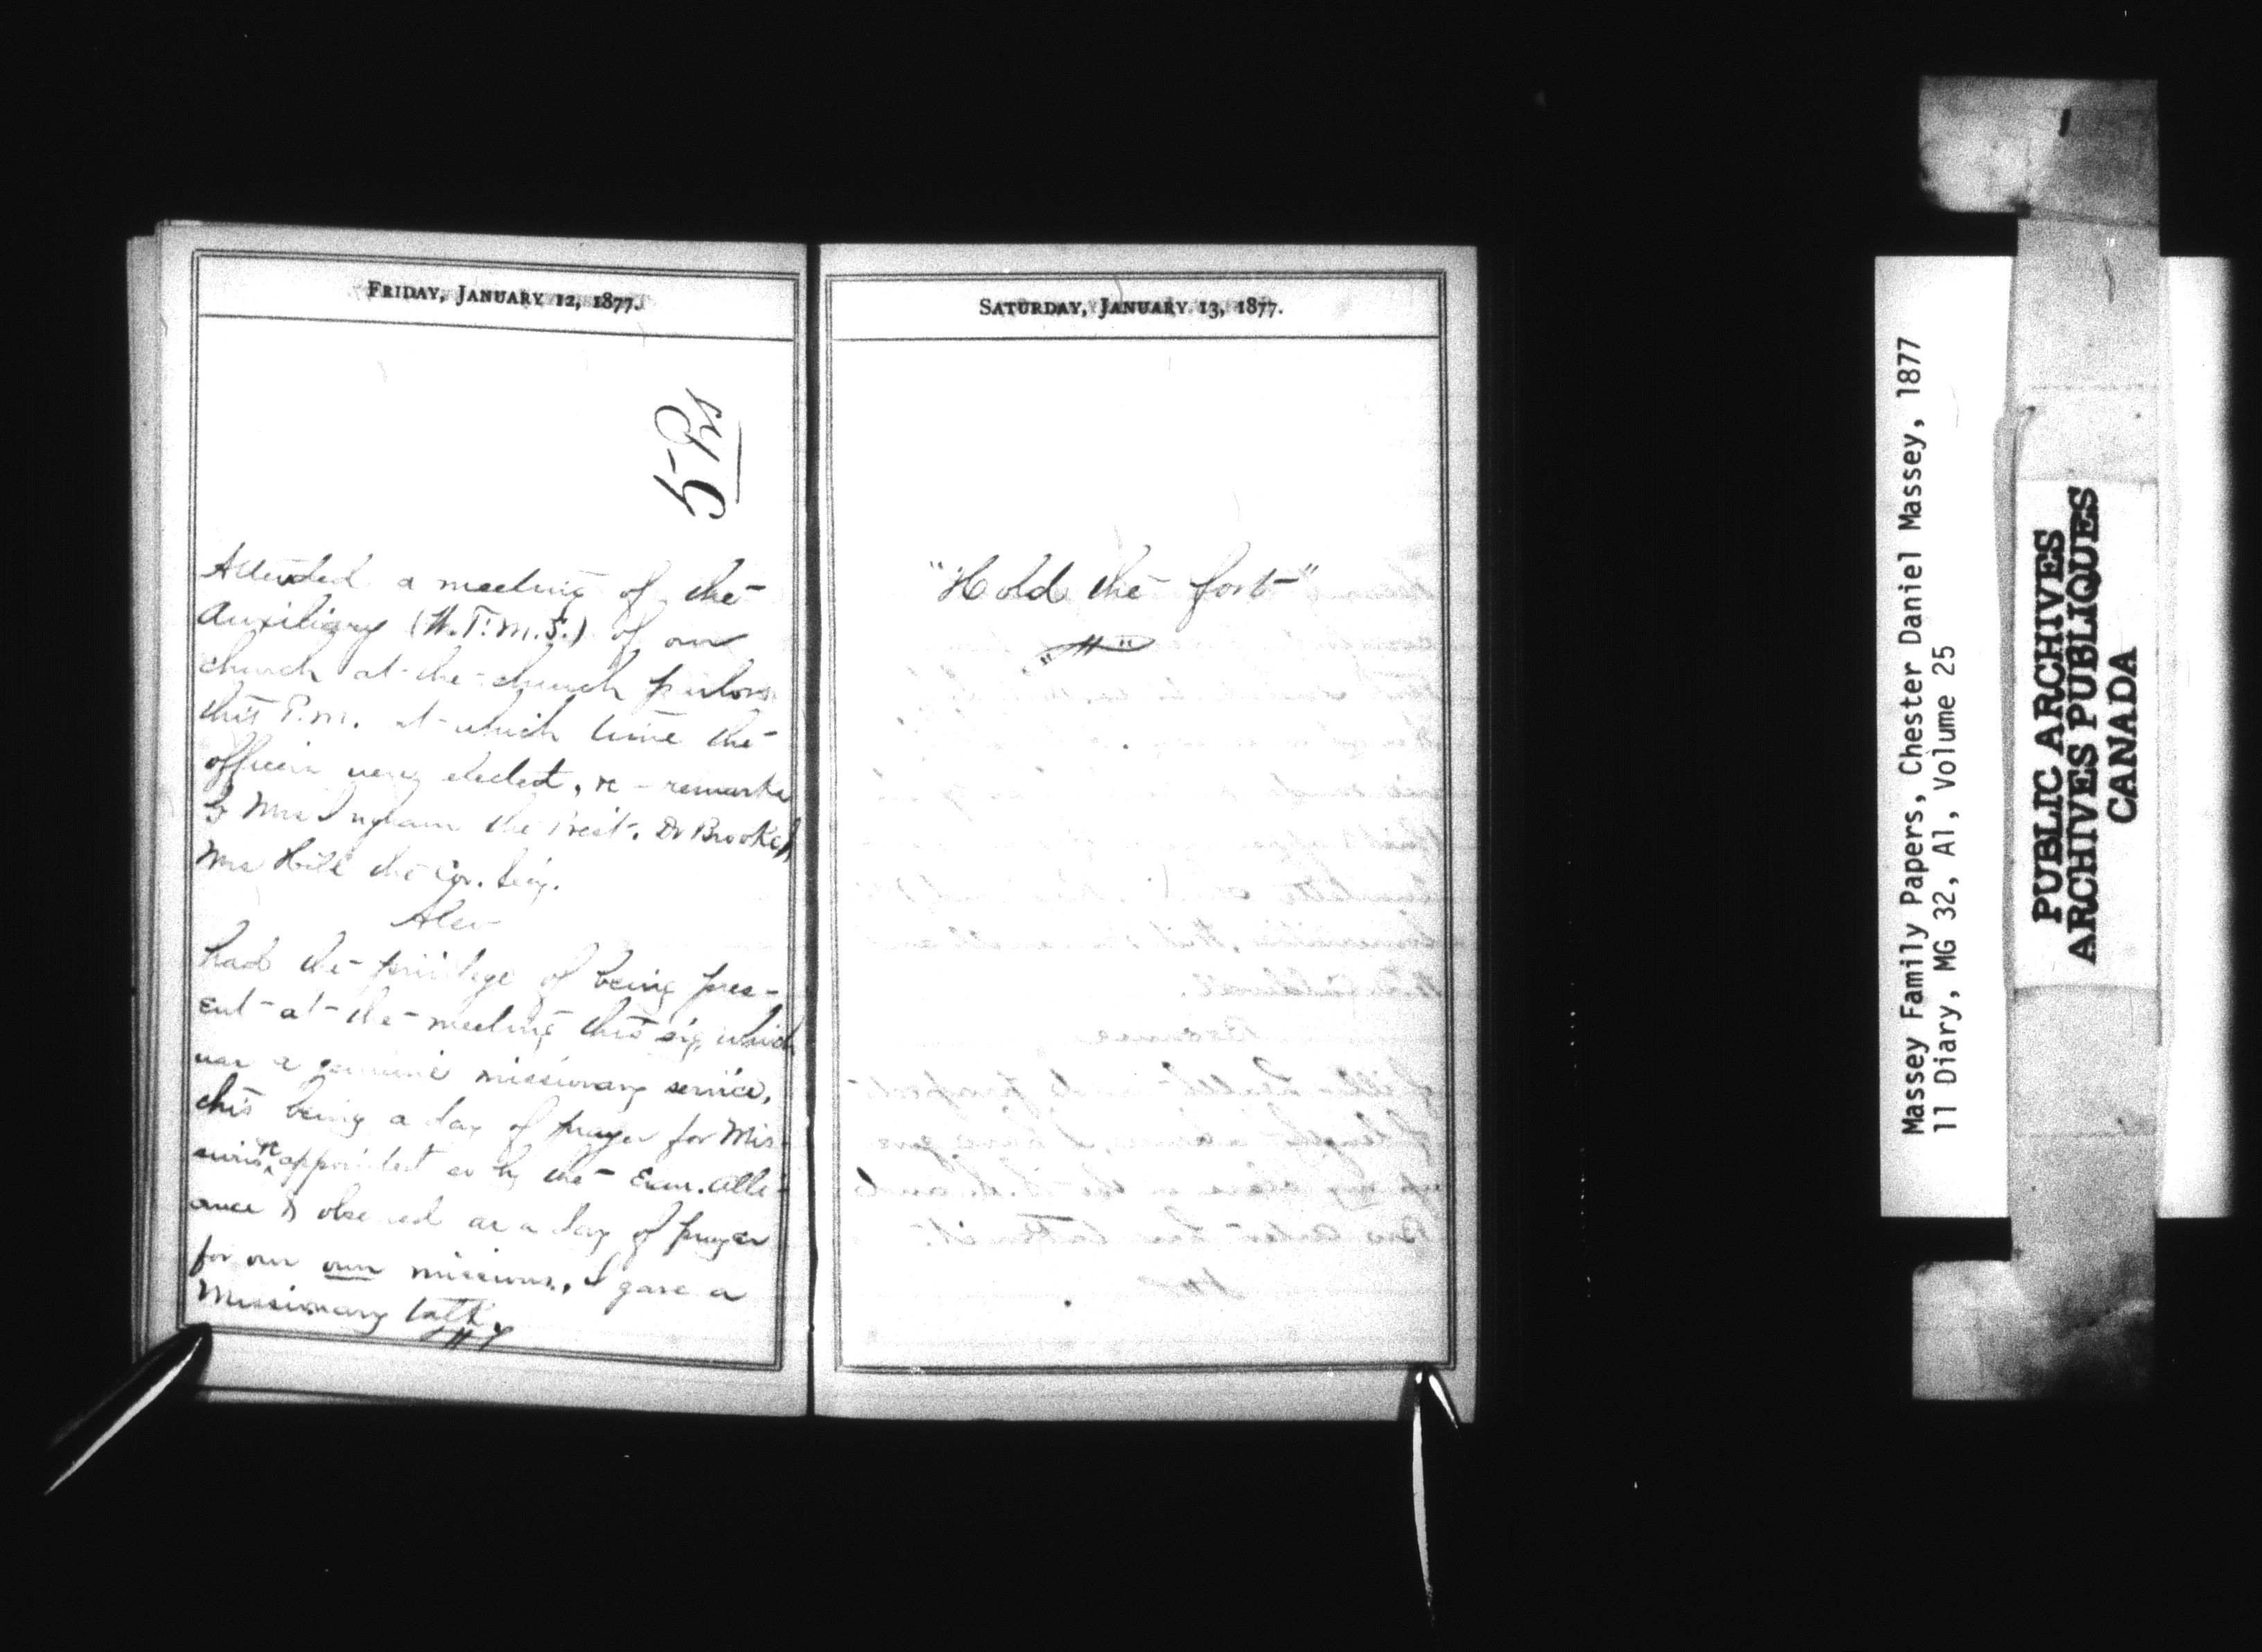 FRIDAY, JANUARY 12, 1877.
5 Prs
Attended a meeting of the
Auxiliary (W.F.M.S.) of our
church at the church parlors
this P.M. at which time the
officers were elected, &c - remarks
by Mrs Ingham the Prest. Dr Brooks,
Mrs Hill the Cor. Secy.
Also
had the privilege of being pres-
ent at the meeting this evg which
was a genuine missionary service,
this being a day of prayer for Mis-
sions appointed so by the Evan. Alli-
ance & observed as a day of prayer
for our own missions, I gave a
Missionary talk.
SATURDAY, JANUARY 13, 1877.
"Hold the fort"
" "
Massey Family Papers, Chester Daniel Massey, 1877
11 Diary, MG 32, A1, Volume 25
PUBLIC ARCHIVES
ARCHIVES PUBLIQUES
CANADA